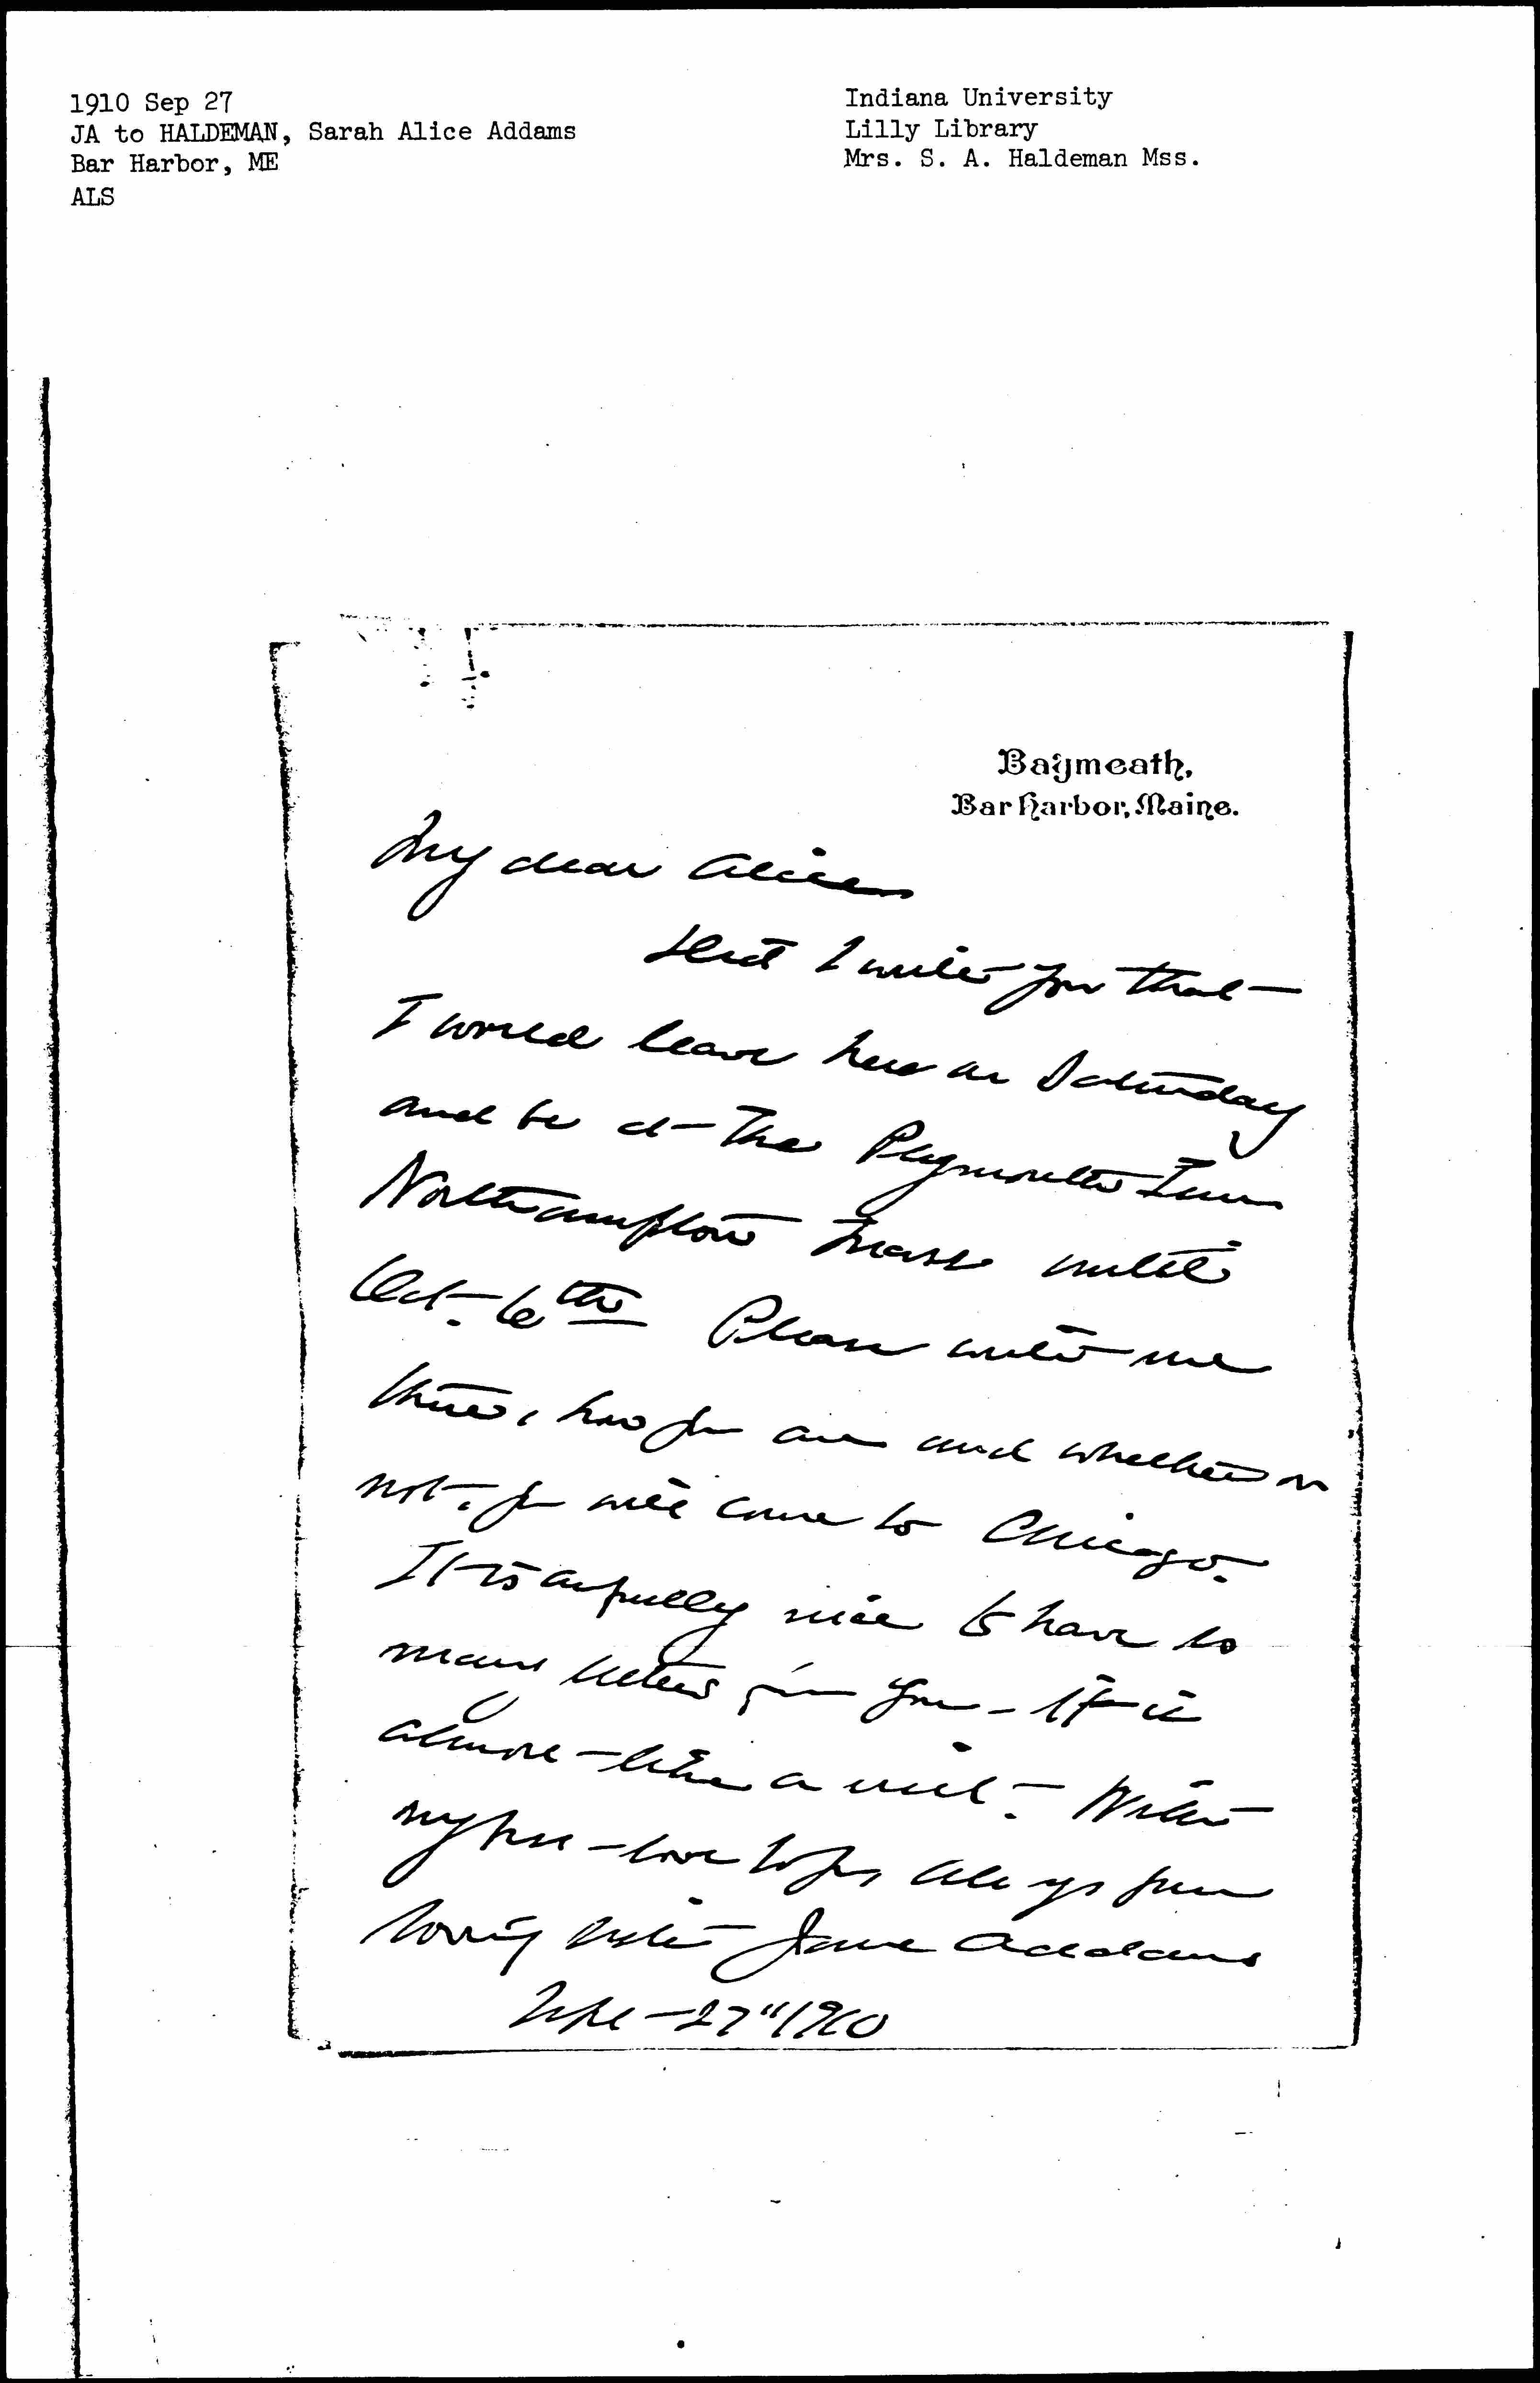 1910 Sep 27
JA to HALDEMAN, Sarah Alice Addams
Bar Harbor, ME
ALS
Indiana University
Lilly Library
Mrs. S. A. Haldeman Mss.
Baymeath,
Bar Harbor, Maine.
My dear Alice
Did I write you that
I would leave here on Saturday
and be at the Plymouth Inn
Northampton Mass until
Oct. 6th Please write me
there, how you are and whether or
not you will come to Chicago.
It is awfully nice to have so
many letters from you - It is
almost like a visit. With
my best love to you always your
loving sister Jane Addams
Sept 27" 1910